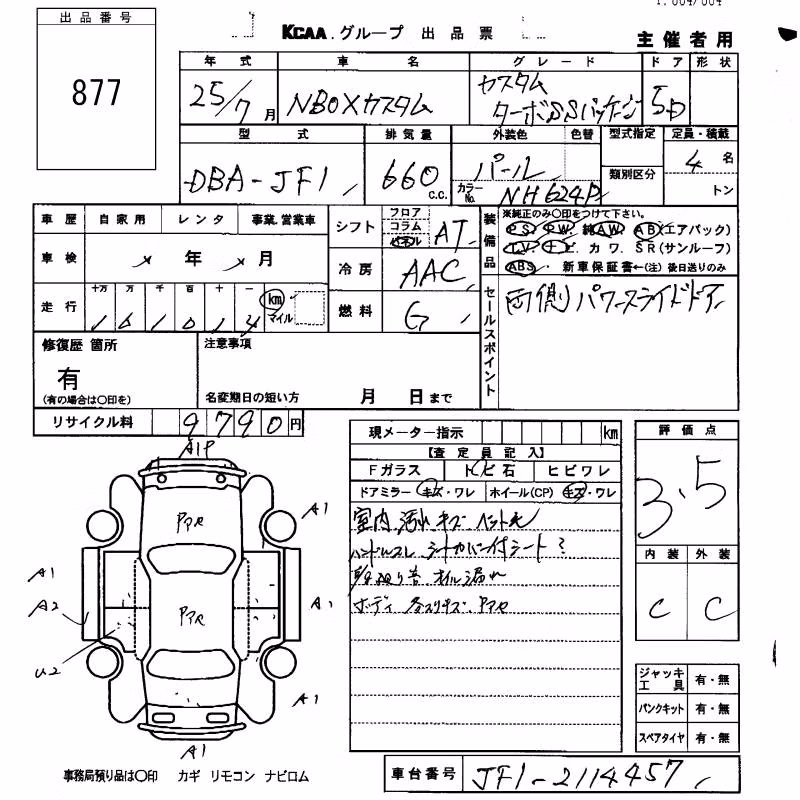 出品番号
877
KCAA グループ 出品票
主催者用
年式 車名 グレード ドア 形状
25/7月 NBOXカスタム カスタム ターボSSパッケージ 5D
型式 排気量 外装色 色替 型式指定 定員・積載
DBA-JF1 660 c.c. パール カラーNo. NH624P 類別区分 4名 トン
車歴 自家用 レンタ 事業.営業車
車検 年 月
走行 十万 万 千 百 十 一 km マイル
1 0 1 0 1 4
シフト フロア コラム パネル AT
冷房 AAC
燃料 G
装備品
※純正のみ○印をつけて下さい。
PS. PW. 純AW. AB(エアバック)
TV. ナビ. カワ. SR(サンルーフ)
ABS. 新車保証書←(注) 後日送りのみ
セールスポイント
両側パワースライドドア
修復歴 箇所
有
(有の場合は○印を)
注意事項
名変期日の短い方 月 日まで
リサイクル料 9790円
現メーター指示 km
【査定員記入】
Fガラス トビ石 ヒビワレ
ドアミラー キズ・ワレ ホイール(CP) キズ・ワレ
室内 汚れ キズ
ハンドルスレ
オイル漏れ
ボディ 各スリキズ.
評価点
3.5
内装 外装
C C
ジャッキ工具 有・無
パンクキット 有・無
スペアタイヤ 有・無
A1P
A1
A1
A2
A1
U2
A1
A1
事務局預り品は○印 カギ リモコン ナビロム
車台番号 JF1-2114457